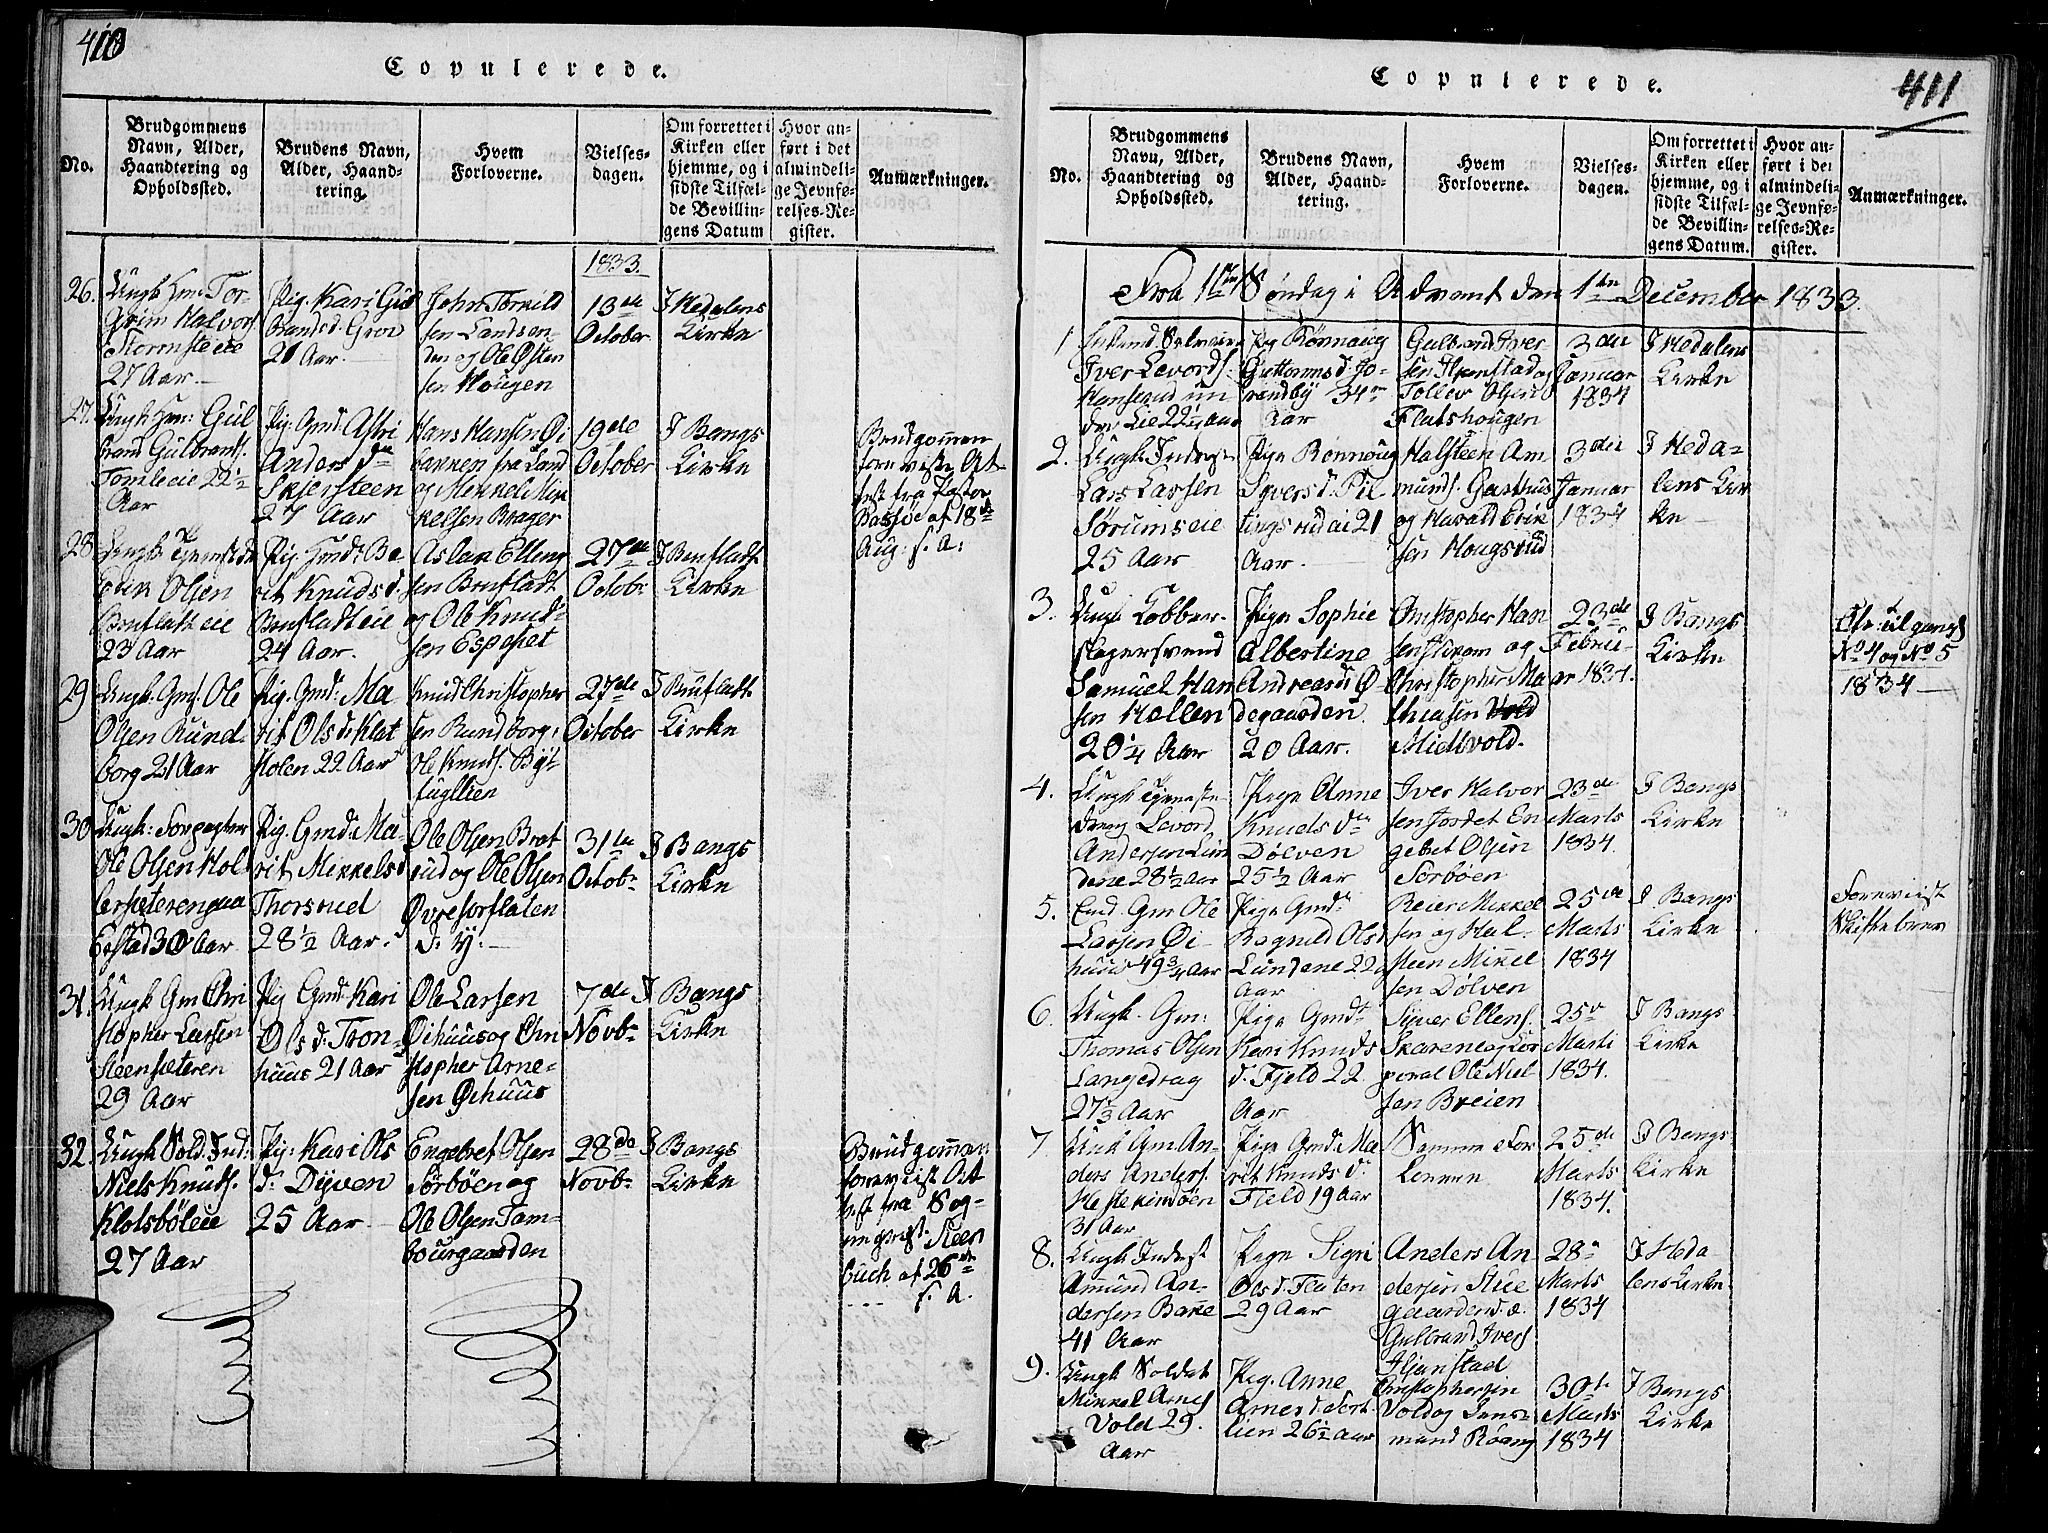 410
Copulerede.
No.
Brudgommens
Navn, Alder,
Haandtering og
Opholdssted.
Brudens Navn,
Alder, Haand-
tering.
Hvem
Forloverne.
Vielses-
dagen.
Om forrettet i
Kirken eller
hjemme, og i
sidste Tilfæl-
de Bevillin-
gens Datum
Hvor an-
ført i det
almindeli-
ge Jevnfø-
relses-Re-
gister.
Anmærkninger.
1833.
26.
Halvors
27 Aar
Pig. Kari Gul
brandsd. Gron
21 Aar.
John Torkild
sen Landsen
den og Ole Østen
sen Hougen
13de
October
I Hedalens
Kirke
27.
Ungk. Gul
brand Gulbrands.
Tomleeie 22½
Aar
Pig: Gmd: Astri
Anders Dr
Skjersteen
27 Aar
Hans Hansen Øi
bakken fra Land
og Mikkel Mik
kelsen Brager
19de
October
I Bangs
Kirke
Brudgommen
At
test fra Pastor
af 18de
Aug: s. A:
28
Erik Olsen
Bruflatteie
23 Aar
Pig: Gmds: Be
rit Knudsd:
Bruflatteie
24 Aar.
Aslak Elling
sen Brufladt
og Ole Knud-
sen Espeset
27de
Octobr
I Brufladt
Kirke
29
Ungk. Gms. Ole
Olsen Rund
borg 21 Aar
Pig. Gmd: Ma
rit Olsd. Klat
holen 22 Aar
Knud Christopher
sen Rundborg;
Ole Knuds. Byt
fugllien
27de
October
I Brufladt
Kirke
30
Ungk: Forpagter
Ole Olsen Hol
lersæteren paa
30 Aar
Pig. Gmd: Ma-
rit Mikkelsd
Thorsrud
28½ Aar.
Ole Olsen Brat
rud og Ole Olsen
Øvre Sorflaten
31te
Octobr
I Bangs
Kirke
31.
Ungk Gm Chri
stopher Larsen
Steensæteren
29 Aar
Pig Gmd: Kari
Ols d: Tron-
huus 21 Aar
Ole Larsen
Øihuus og Chri
stopher Arne-
sen Øihuus
7de
Novbr
I Bangs
Kirke
32.
Ungk Sold. Ind:
Niels Knuds.
Klotsböleie
27 Aar
Pig: Kari Ols
d: Dyven
25 Aar
Engebret Olsen
Sörböen og
Ole Olsen Tam-
bourgaarden
28de
Novbr
I Bangs
Kirke
Brudgommen
foreviist At
test fra Sog-
nepræst Steen
buch af 26de
s. A.
411
Copulerede.
No.
Brudgommens
Navn, Alder,
Haandtering og
Opholdssted.
Brudens Navn,
Alder, Haand-
tering.
Hvem
Forloverne.
Vielses-
dagen.
Om forrettet i
Kirken eller
hjemme, og i
sidste Tilfæl-
de Bevillin-
gens Datum.
Hvor an-
ført i det
almindeli-
ge Jevnfø-
relses-Re-
gister.
Anmærkninger.
Fra 1ste Søndag i Advent den 1ste December 1833.
1
Iver Levords.
un
der Lie 22½ Aar
Pig Rönnaug
Guttormsd.
34
Aar
Gulbrand Iver
sen og
Tollev Olsen
Flatshougen
3die
Januar
1834
I Hedalens
Kirke
2.
Ungk. Inderst
Lars Larsen
Sørumseie
25 Aar
Pige Rönnoug
Syversd. Pil
21
Aar.
Halsteen Am
munds. Garthus
og Harald Erik
sen Hougsrud
3die
Januar
1834
I Heda-
lens Kir
ke
3.
Ungk Kobber-
slagersvend
Samuel Han
sen Hollen
20¼ Aar
Pige Sophie
Albertine
Andreasd: Ø-
degaarden.
20 Aar.
Christopher Han
sen og
Christopher Ma
thiesen Vold
Mielkvold.
23de
Februa-
ar 1834.
I Bangs
Kirke
Ofr. Tilgangs
No 4 og No 5
1834
4.
Ungk Tjeneste
dreng Levord
Andersen Lun
dene 28½ Aar
Pige Anne
Knuds Dr
Dölven
25½ Aar
Iver Halvor
sen Jordet En
gebret Olsen
Sörböen
23de
Marts
1834.
I Bangs
Kirke
5.
Enk. Gm Ole
Larsen Øi-
huus 49¾ Aar
Pige Gmds
Ragnild Olsd
Lundene 22
Aar
Reier Mikkel
sen og Hal-
steen Mikel
sen Dölven
25de
Marts
1834
I Bangs
Kirke
Foreviist
Skiftebrev
6.
Ungk. Gm:
Thomas Olsen
Langedrag
27⅓ Aar
Pige Gmds
Kari Knuds
d. Fjeld 22
Aar
Syver Ellens.
Skarene og Cor
poral Ole Niel
sen Breien
25de
Marts
1834.
I Bangs
Kirke
7.
Ungk Gm An-
ders Anders.
Hestekinnöen
31 Aar
Pige Gmds Ma
rit Knuds Dr
Fjeld 19 Aar
Samme For
lovere
25de
Marts
1834.
I Bangs
Kirke
8.
Ungk Inderst
Ammund An-
dersen Bakke
41 Aar
Pige Sigri
Ols d. Fluten
29 Aar
Anders An
dersen Stue
gaarden &
Gulbrand Ivers
Iljernstad
28de
Marts
1834
I Heda
lens Kirke.
9.
Ungk Soldat
Mikkel Arnes
Vold 29.
Aar
Pig. Anne
Arnesd. Sort
lien 26½ Aar
Christophersen
Vold og Lens-
mand Röang
30te
Marts
1834
I Bangs
Kirke